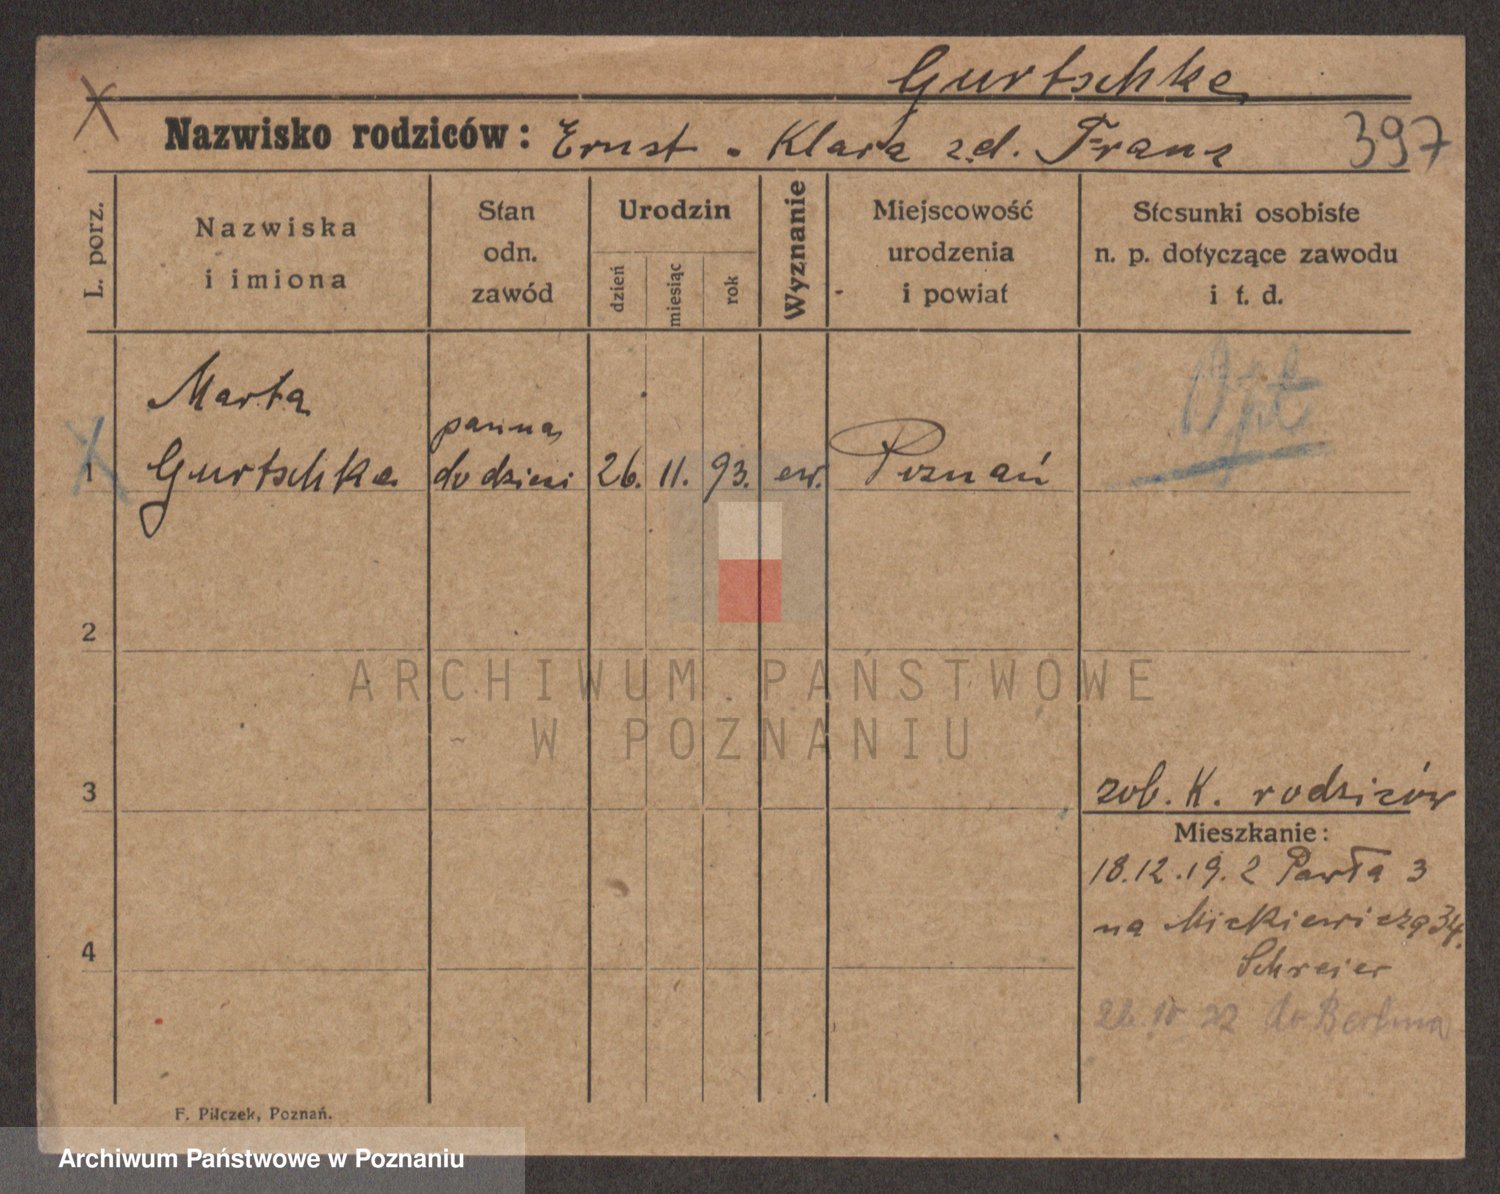 Gurtschke
Nazwisko rodziców: Ernst - Klara z.d. Franz 397
L. porz.
Nazwiska
i imiona
Stan
odn.
zawód
Urodzin
dzień
miesiąc
rok
Wyznanie
Miejscowość
urodzenia
i powiat
Stosunki osobiste
n. p. dotyczące zawodu
i t. d.
Marta
Gurtschke
panna
do dzieci
1
26. 11. 93.
ew.
Poznań
Opt
2
ARCHIWUM PAŃSTWOWE
W POZNANIU
3
zob. K. rodziców
Mieszkanie:
18.12.19. z Pawła 3
na Mickiewicza 34.
Schreier
4
22 do Berlina
F. Pilczek, Poznań.
Archiwum Państwowe w Poznaniu